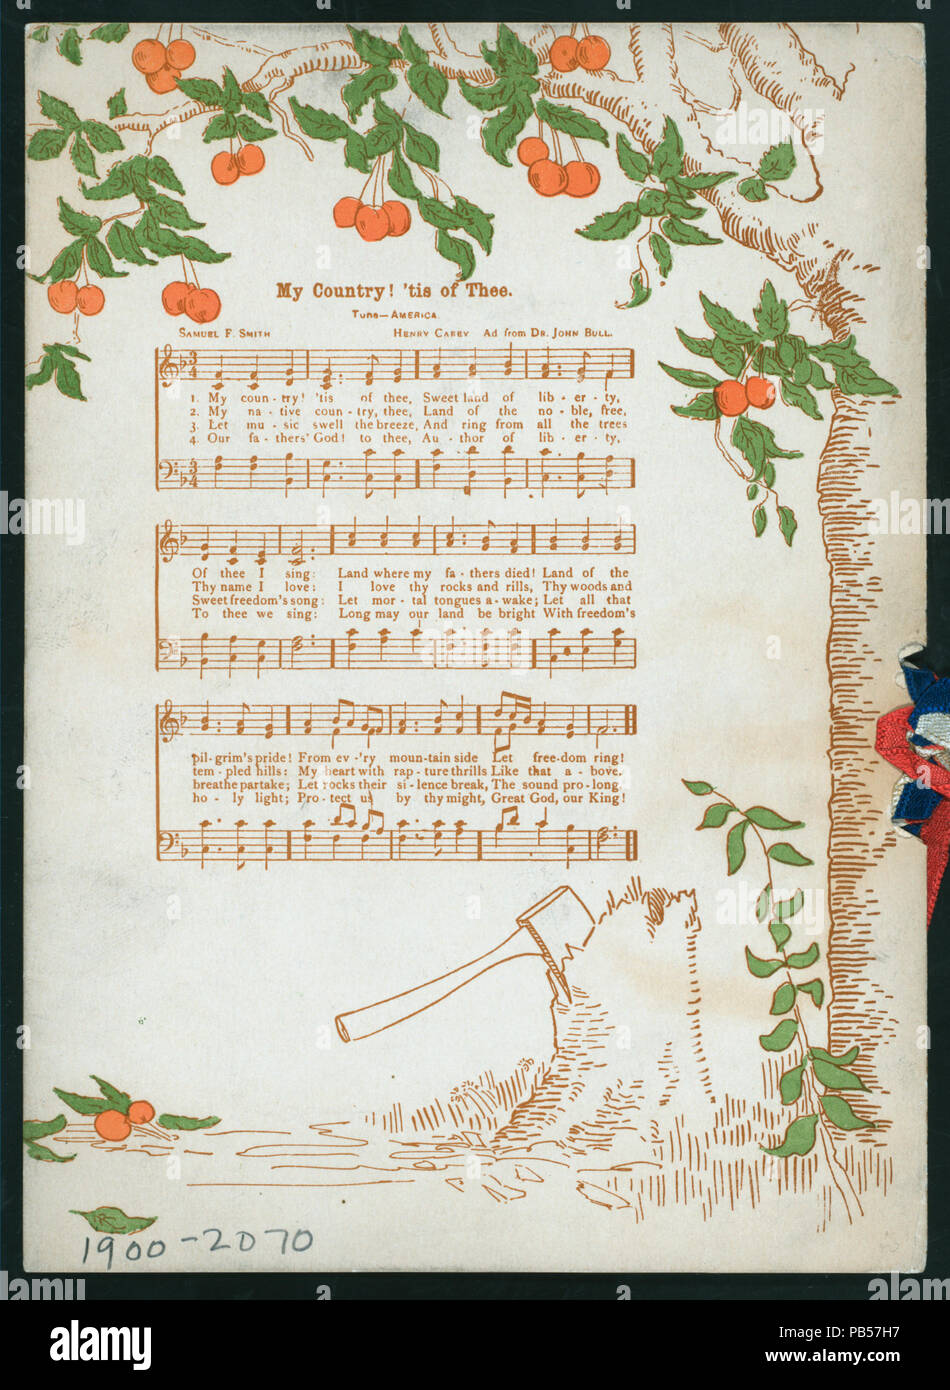 My Country! 'tis of Thee.
Tune—AMERICA.
SAMUEL F. SMITH
HENRY CAREY Ad from DR. JOHN BULL.
1. My coun - try! 'tis of thee, Sweet land of lib - er - ty,
2. My na - tive coun - try, thee, Land of the no - ble, free,
3. Let mu - sic swell the breeze, And ring from all the trees
4. Our fa - thers' God! to thee, Au - thor of lib - er - ty,
Of thee I sing: Land where my fa - thers died! Land of the
Thy name I love: I love thy rocks and rills, Thy woods and
Sweet freedom's song: Let mor - tal tongues a - wake; Let all that
To thee we sing: Long may our land be bright With freedom's
pil - grim's pride! From ev - 'ry moun - tain side Let free - dom ring!
tem - pled hills: My heart with rap - ture thrills Like that a - bove.
breathe partake; Let rocks their si - lence break, The sound pro - long.
ho - ly light; Pro - tect us by thy might, Great God, our King!
1900-2070
alamy
Image ID: PB57H7
www.alamy.com